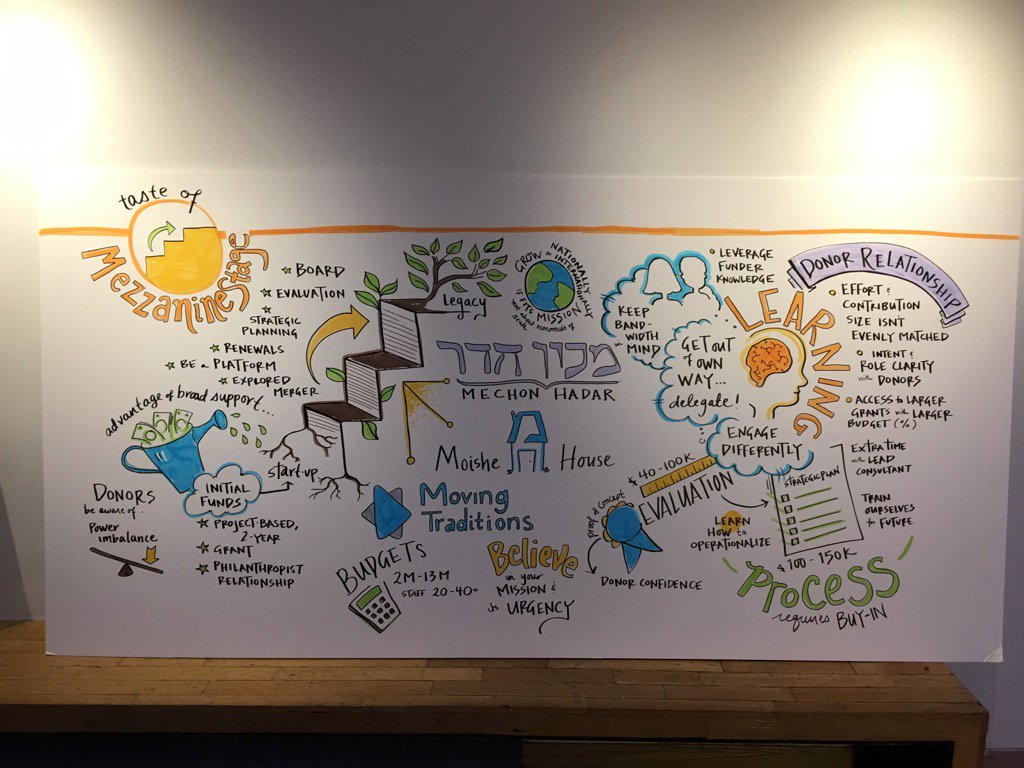 taste of
Mezzanine Stage
☆ BOARD
☆ EVALUATION
☆ STRATEGIC
PLANNING
☆ RENEWALS
☆ BE a PLATFORM
☆ EXPLORED
MERGER
advantage of broad support...
INITIAL
FUNDS
start-up
DONORS
be aware of..
Power
imbalance
☆ PROJECT-BASED,
2-YEAR
☆ GRANT
☆ PHILANTHROPIST
RELATIONSHIP
Legacy
GROW
NATIONALLY
INTERNATIONALLY
IF FITS MISSION
not about economies of
scale
מכון הדר
MECHON HADAR
Moishe מ House
Moving
Traditions
BUDGETS
2M-13M
STAFF 20-40+
Believe
in your
MISSION &
its URGENCY
KEEP
BAND-
WIDTH in
MIND
GET OUT
of OWN
WAY...
delegate!
ENGAGE
DIFFERENTLY
• LEVERAGE
FUNDER
KNOWLEDGE
LEARNING
DONOR RELATIONSHIP
• EFFORT &
CONTRIBUTION
SIZE ISN'T
EVENLY MATCHED
• INTENT &
ROLE CLARITY
with DONORS
• ACCESS to LARGER
GRANTS with LARGER
BUDGET (%)
$40-100K
EVALUATION
proof of concept
DONOR CONFIDENCE
LEARN
HOW to
OPERATIONALIZE
STRATEGIC PLAN
$100-150K
EXTRA TIME
with LEAD
CONSULTANT
TRAIN
OURSELVES
for FUTURE
PROCESS
requires BUY-IN